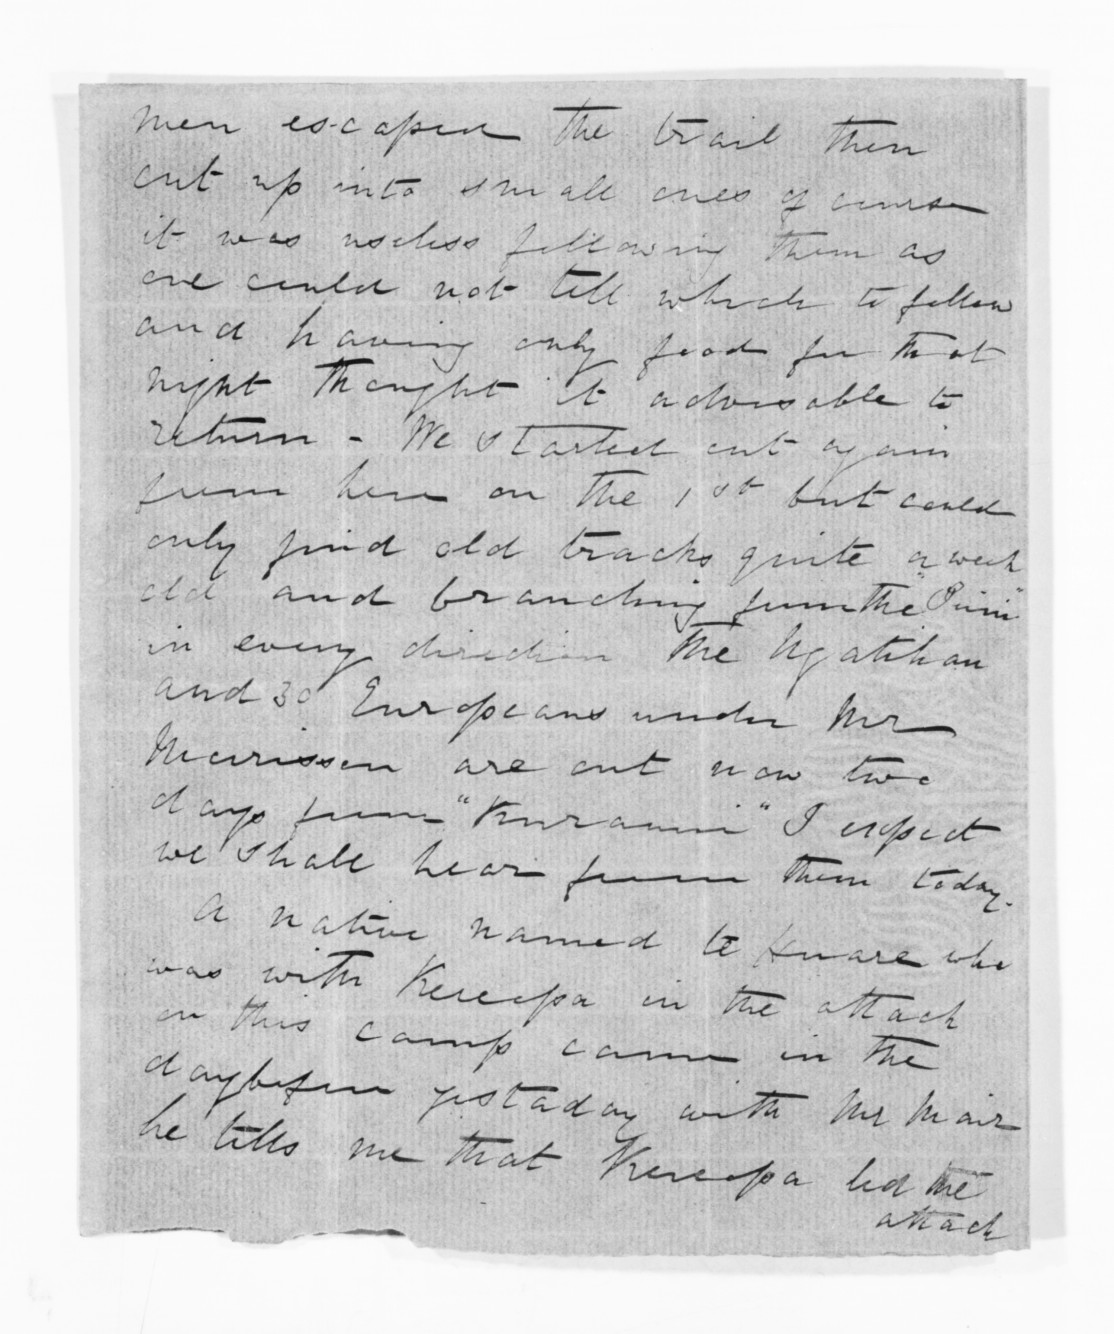 men escaped the trail then
cut up into small ones of course
it was useless following them as
one could not tell which to follow
and having only food for that
night thought it advisable to
return - We started out again
from here on the 1st but could
only find old tracks quite a week
old and branching from the
in every direction The Ngatihau
and 30 Europeans under Mr
Morrisson are out now two
days from "Kuranui" I expect
we shall hear from them today.
A native named te who
was with Kereopa in the attack
on this camp came in the
daybefore yestaday with Mr Mair
he tells me that Kereopa led the
attack